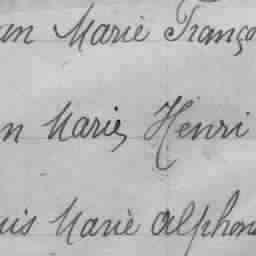 an Marie Franço
n Marie, Henri
uis Marie Alphons